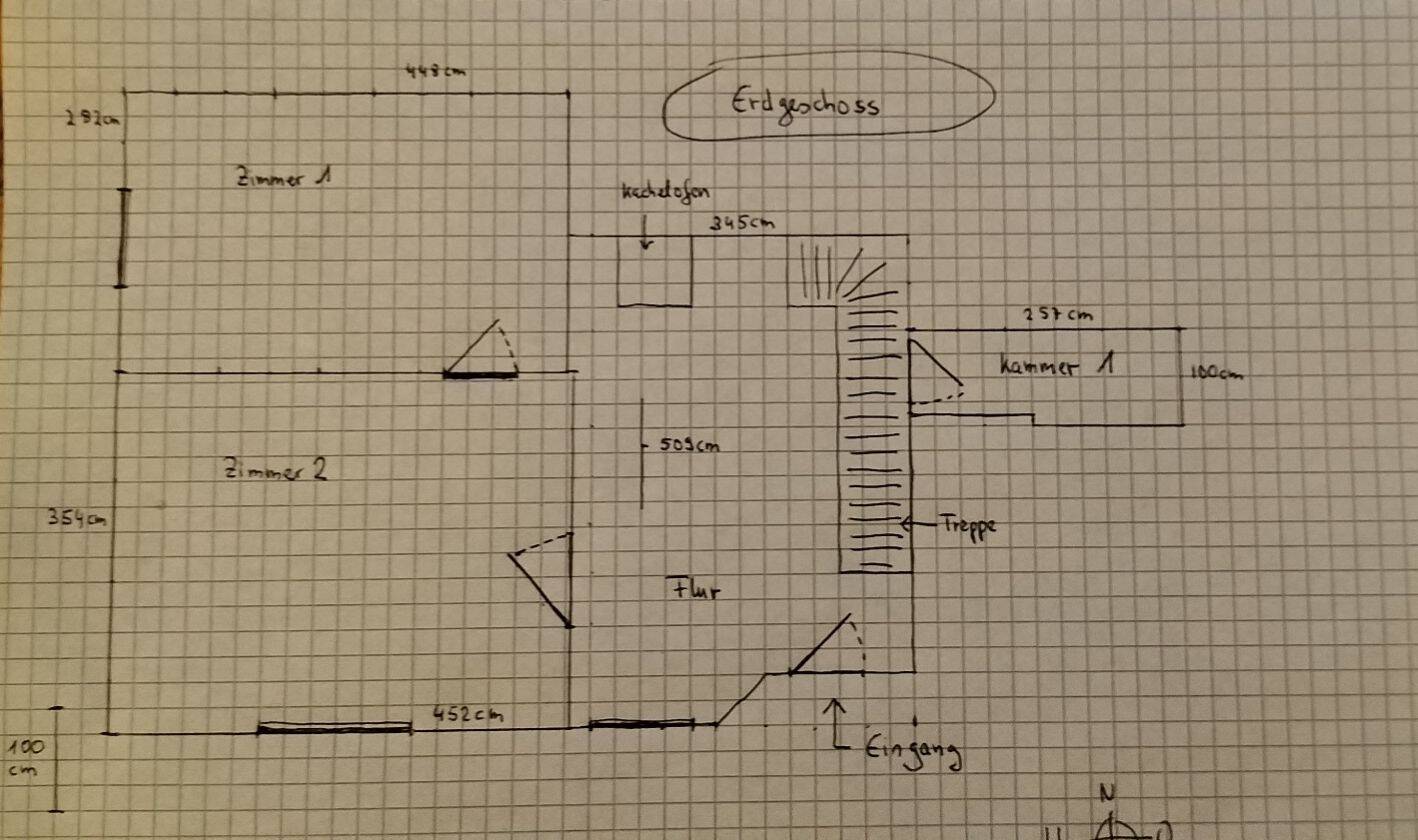 448cm
Erdgeschoss
292cm
Zimmer 1
Kachelofen
345cm
257cm
Kammer 1
100cm
509cm
Zimmer 2
354cm
Treppe
Flur
452cm
100
cm
Eingang
N